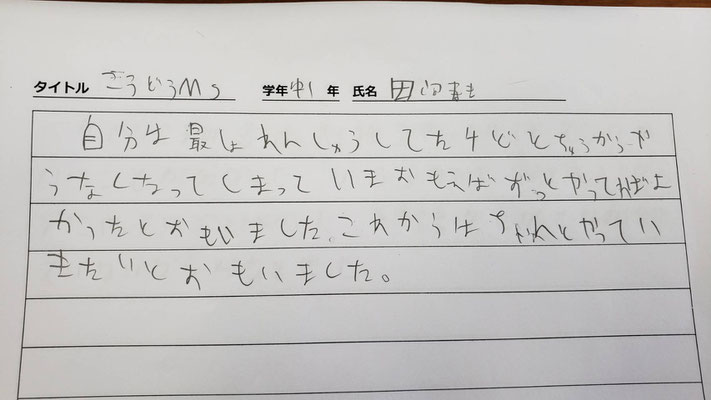 タイトル ごうどうMS 学年 中1 年 氏名 田
自分は最しょれんしゅうしてたけどとちゅうからや
らなくなってしまっていまおもえばずっとやってればよ
かったとおもいました、これからはちゃんとやってい
きたいとおもいました。